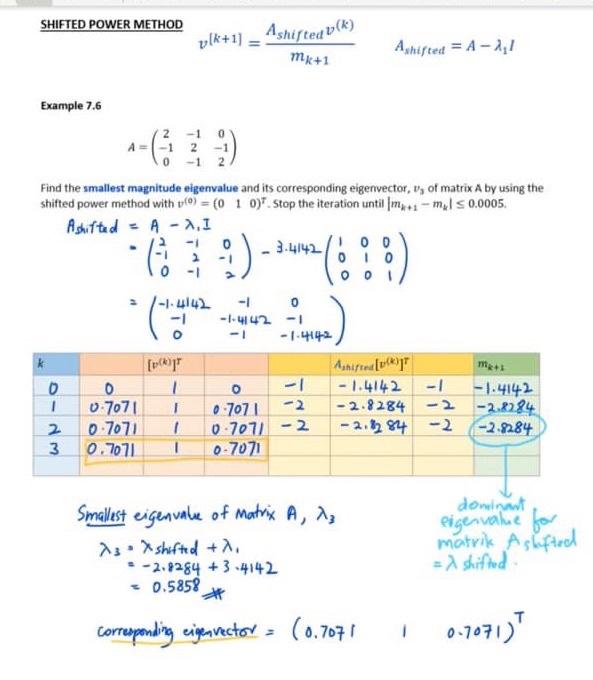 SHIFTED POWER METHOD
v[k+1] = A shifted v(k) / m k+1    A shifted = A − λ₁I
Example 7.6
A = ( 2 −1 0
−1 2 −1
0 −1 2 )
Find the smallest magnitude eigenvalue and its corresponding eigenvector, v₃ of matrix A by using the
shifted power method with v⁽⁰⁾ = (0 1 0)ᵀ. Stop the iteration until |mₖ₊₁ − mₖ| ≤ 0.0005.
A shifted = A − λ₁I
= ( 2 −1 0
−1 2 −1
0 −1 2 ) − 3.4142 ( 1 0 0
0 1 0
0 0 1 )
= ( −1.4142 −1 0
−1 −1.4142 −1
0 −1 −1.4142 )
k [v(k)]ᵀ A shifted [v(k)]ᵀ mₖ₊₁
0 0 1 0 −1 −1.4142 −1 −1.4142
1 0.7071 1 0.7071 −2 −2.8284 −2 −2.8284
2 0.7071 1 0.7071 −2 −2.8284 −2 −2.8284
3 0.7071 1 0.7071
dominant
eigenvalue for
matrik A shifted
= λ shifted.
Smallest eigenvalue of Matrix A, λ₃
λ₃ = λ shifted + λ₁
= −2.8284 + 3.4142
= 0.5858 #
corresponding eigenvector = (0.7071 1 0.7071)ᵀ